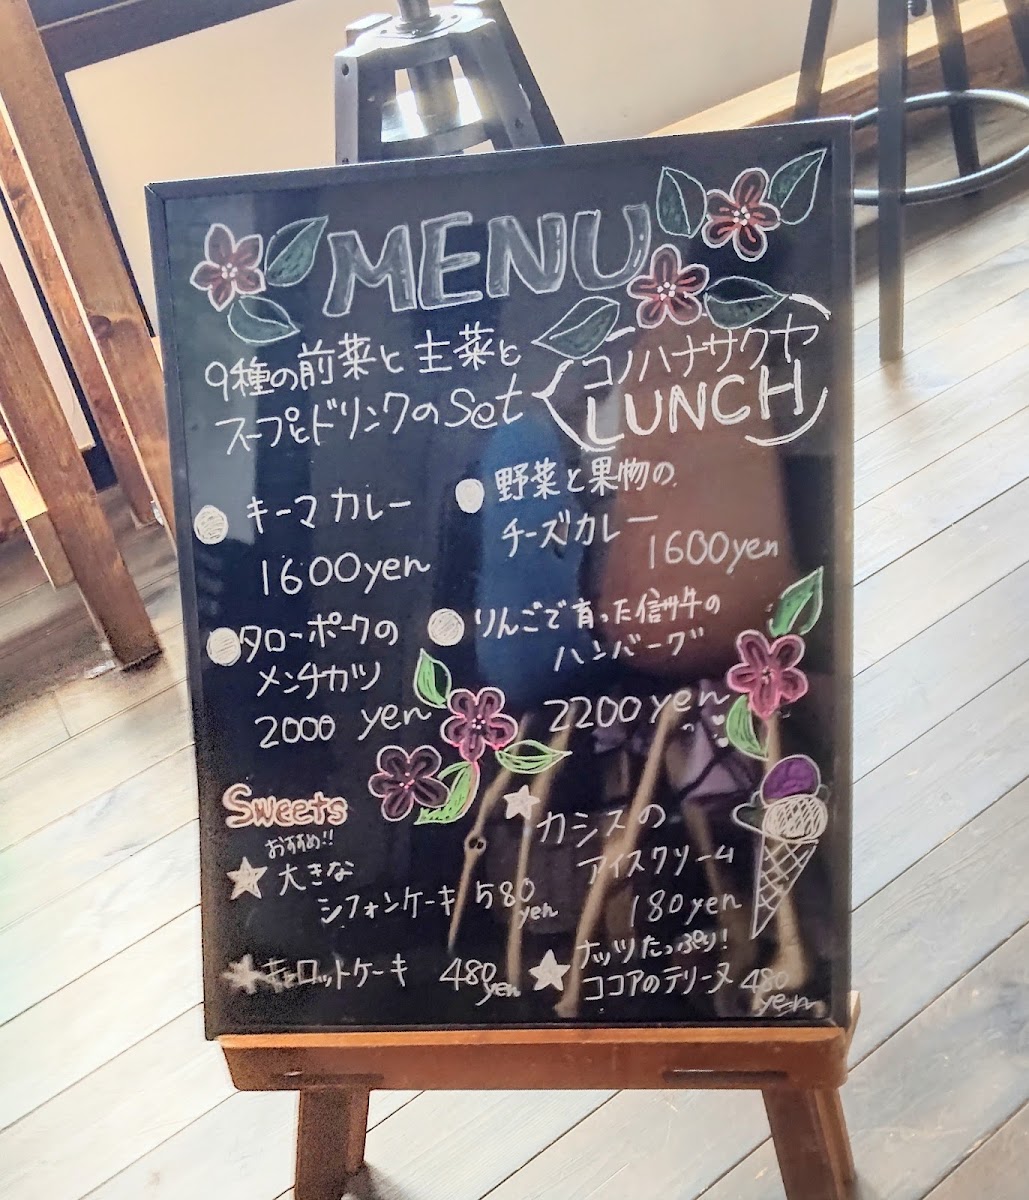 MENU
9種の前菜と主菜と
スープとドリンクのset
コノハナサクヤ
LUNCH
キーマカレー
1600yen
野菜と果物の
チーズカレー
1600yen
タローポークの
メンチカツ
2000 yen
りんごで育った信州牛の
ハンバーグ
2200yen
Sweets
おすすめ!!
大きな
シフォンケーキ 580
yen
キャロットケーキ 480
yen
カシスの
アイスクリーム
180yen
ナッツたっぷり!
ココアのテリーヌ 480
yen